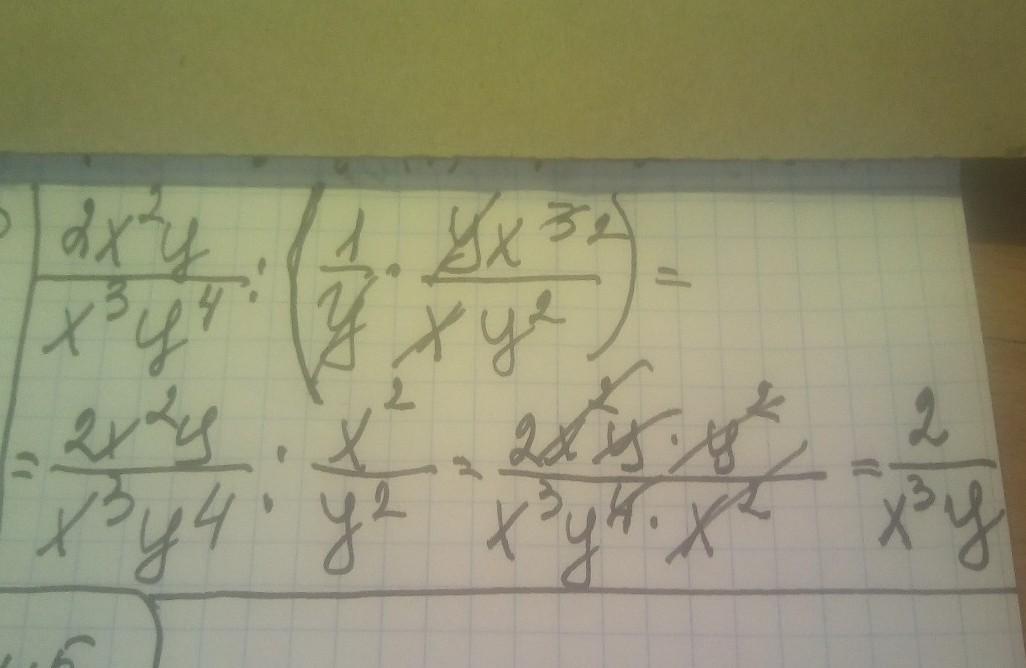 2x²y/x³y⁴ : (1/y · yx³²/xy²) =
= 2x²y/x³y⁴ : x²/y² = 2x²y · y²/x³y⁴ · x² = 2/x³y